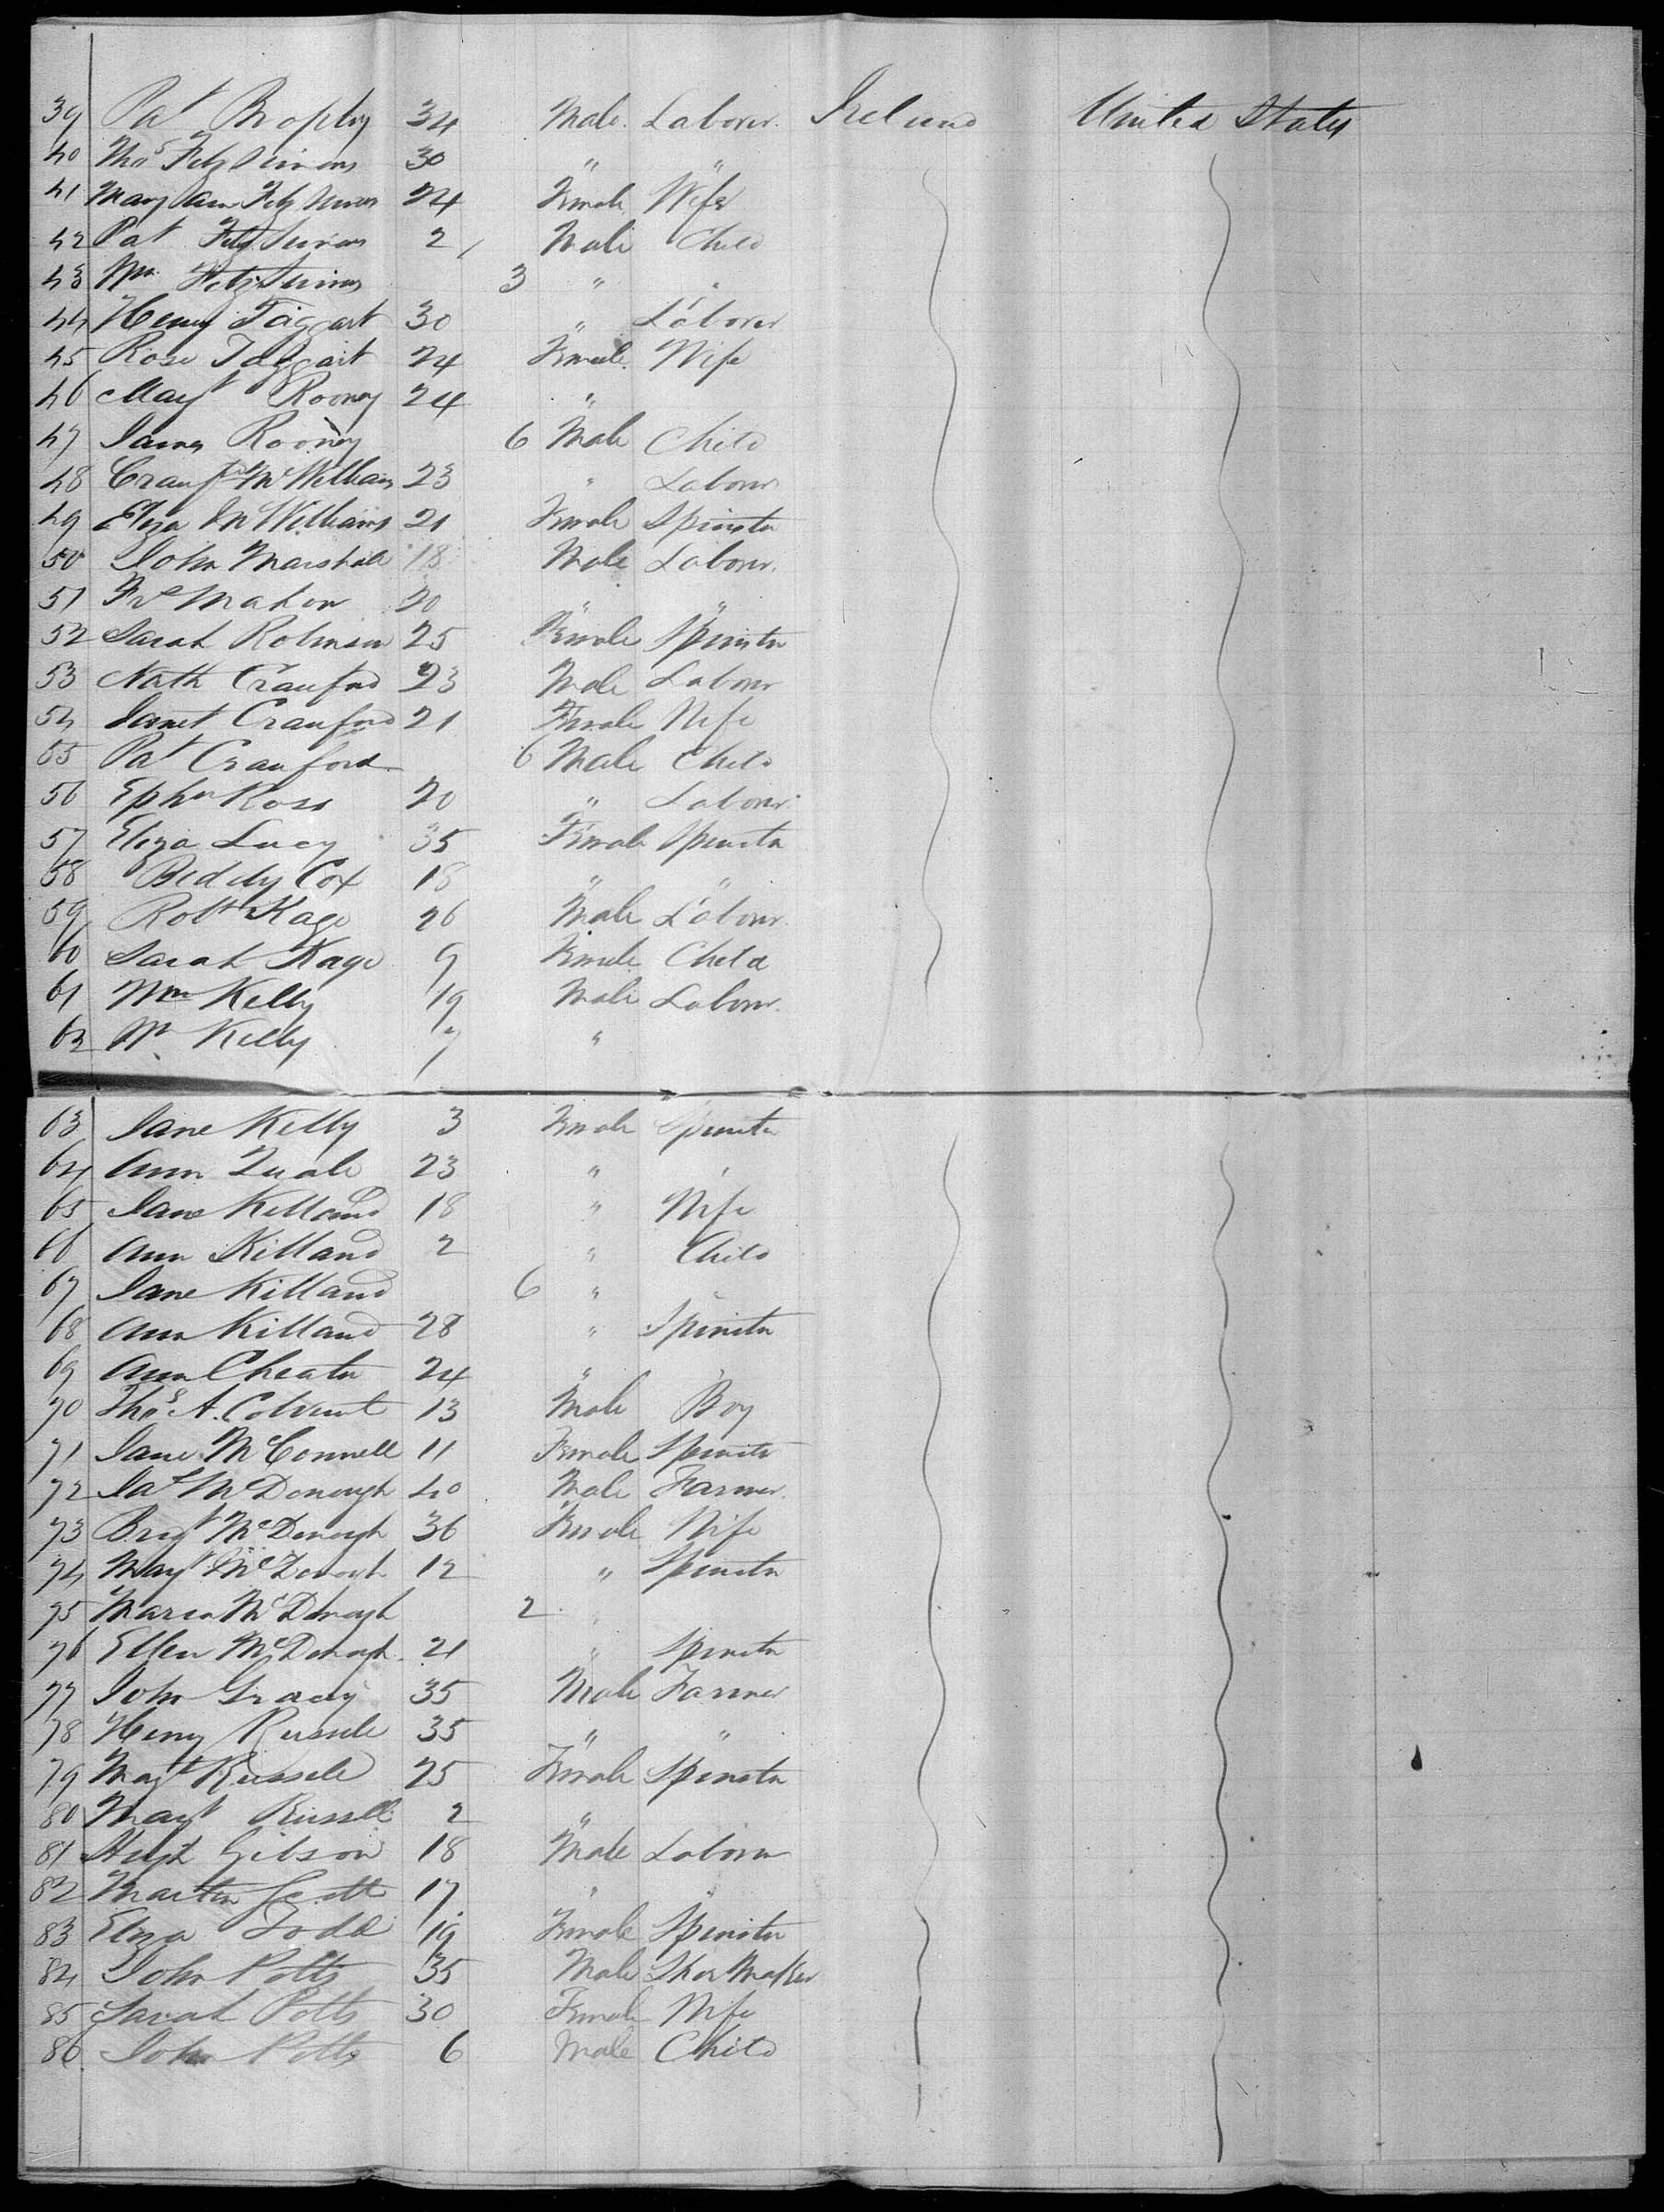 39 Pat Brophy 34 Male. Laborer. Ireland United States
40 Thos Fitz Simons 30 " "
41 Mary Ann Fitz Simons 24 Female Wife
42 Pat Fitz Simons 2 Male Child
43 Wm Fitz Simons 3 " "
44 Henry Taggart 30 " Laborer
45 Rose Taggart 24 Female Wife
46 Magt Rooney 24 "
47 James Rooney 6 Male Child
48 McWilliams 23 " Laborer
49 Eliza McWilliams 21 Female Spinster
50 John Marshall 18 Male Laborer.
51 Mahon 20 " "
52 Sarah Robinson 25 Female Spinster
53 Nath Crauford 23 Male Laborer
54 Janet Crauford 21 Female Wife
55 Pat Crauford 6 Male Child
56 Ephm Ross 20 " Laborer
57 Eliza Lucy 35 Female Spinster
58 Biddy Cox 18 " "
59 Robt Kage 26 Male Laborer.
60 Sarah Kage 9 Female Child
61 Wm Kelly 19 Male Laborer.
62 Kelly 7 "
63 Jane Kelly 3 Female Spinster
64 Ann Quale 23 " "
65 Jane Killand 18 " Wife
66 Ann Killand 2 " Child
67 Jane Killand 6 " "
68 Ann Killand 28 " Spinster
69 Ann Cheater 24 "
70 Thos A. 13 Male Boy
71 Jane McConnell 11 Female Spinster
72 McDonough 40 Male Farmer.
73 Brigt McDonough 36 Female Wife
74 Magt McDonough 12 " Spinster
75 Maria McDonough 2
76 Ellen McDonough 21 " Spinster
77 John Gracey 35 Male Farmer
78 Henry Russell 35 " "
79 Magt Russell 25 Female Spinster
80 Magt Russell 2 "
81 Hugh Gibson 18 Male Laborer
82 Martin Scott 17 " "
83 Eliza Todd 19 Female Spinster
84 John Potts 35 Male Shoe Maker
85 Sarah Potts 30 Female Wife
86 John Potts 6 Male Child